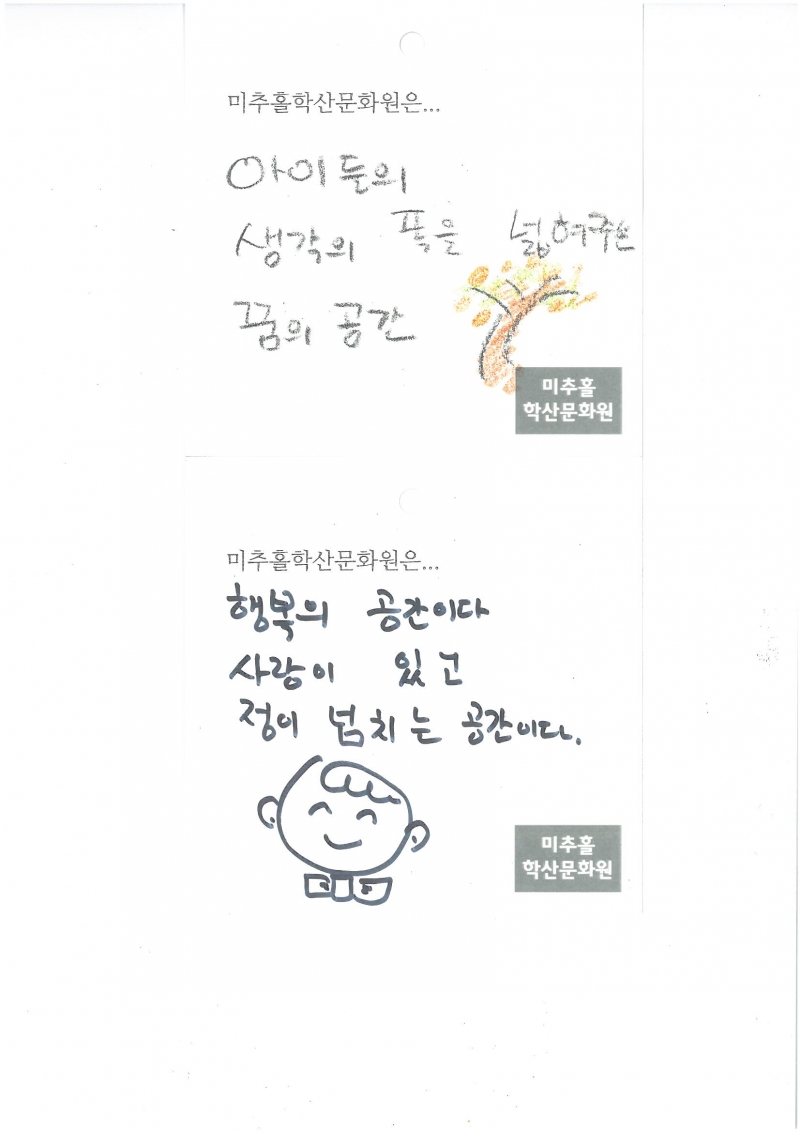 미추홀학산문화원은...
아이들의
생각의 폭을 넓혀주는
꿈의 공간
미추홀
학산문화원
미추홀학산문화원은...
행복의 공간이다
사랑이 있고
정이 넘치는 공간이다.
미추홀
학산문화원